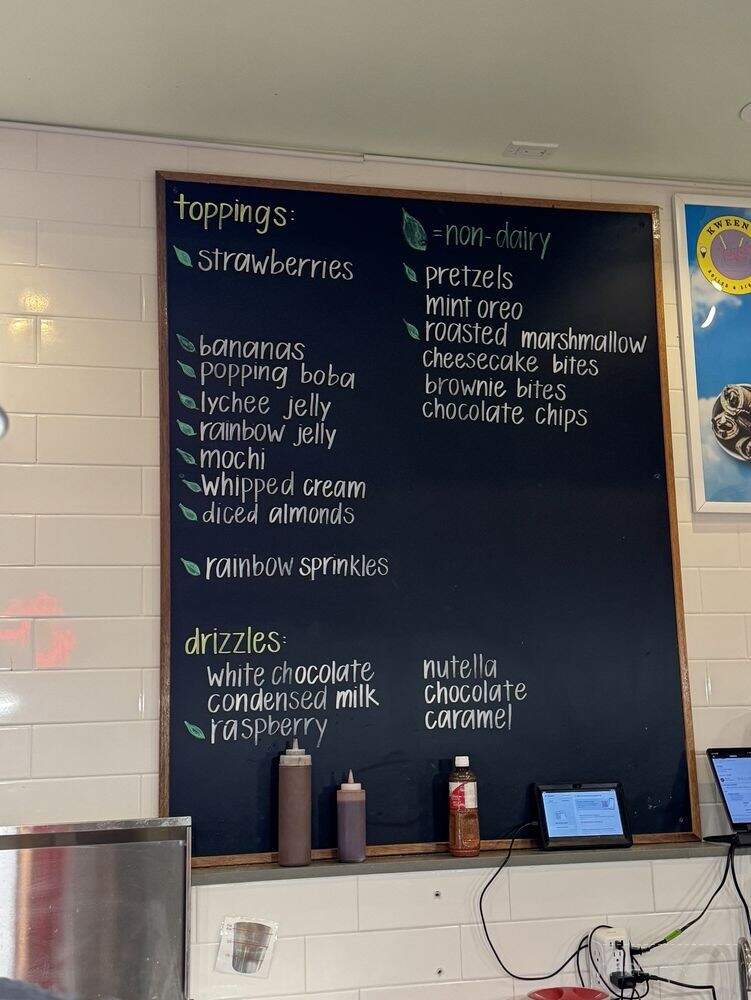 toppings:
strawberries
bananas
popping boba
lychee jelly
rainbow jelly
mochi
whipped cream
diced almonds
rainbow sprinkles
=non-dairy
pretzels
mint oreo
roasted marshmallow
cheesecake bites
brownie bites
chocolate chips
drizzles:
white chocolate
condensed milk
raspberry
nutella
chocolate
caramel
KWEEN